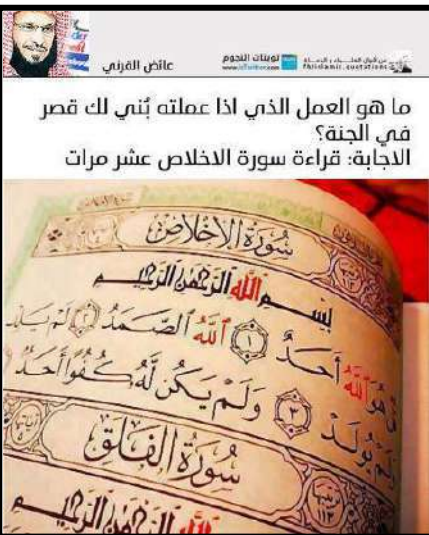 عائض القرني
تويتات النجوم
ما هو العمل الذي اذا عملته بُني لك قصر
في الجنة؟
الاجابة: قراءة سورة الاخلاص عشر مرات
سُورَةُ الإِخْلَاصِ
بِسْمِ اللَّهِ الرَّحْمَٰنِ الرَّحِيمِ
قُلْ هُوَ اللَّهُ أَحَدٌ ١ اللَّهُ الصَّمَدُ ٢ لَمْ يَلِدْ
وَلَمْ يُولَدْ ٣ وَلَمْ يَكُن لَّهُ كُفُوًا أَحَدٌ
سُورَةُ الْفَلَقِ
١١٣
اللَّهِ الرَّحْمَٰنِ الرَّحِيمِ